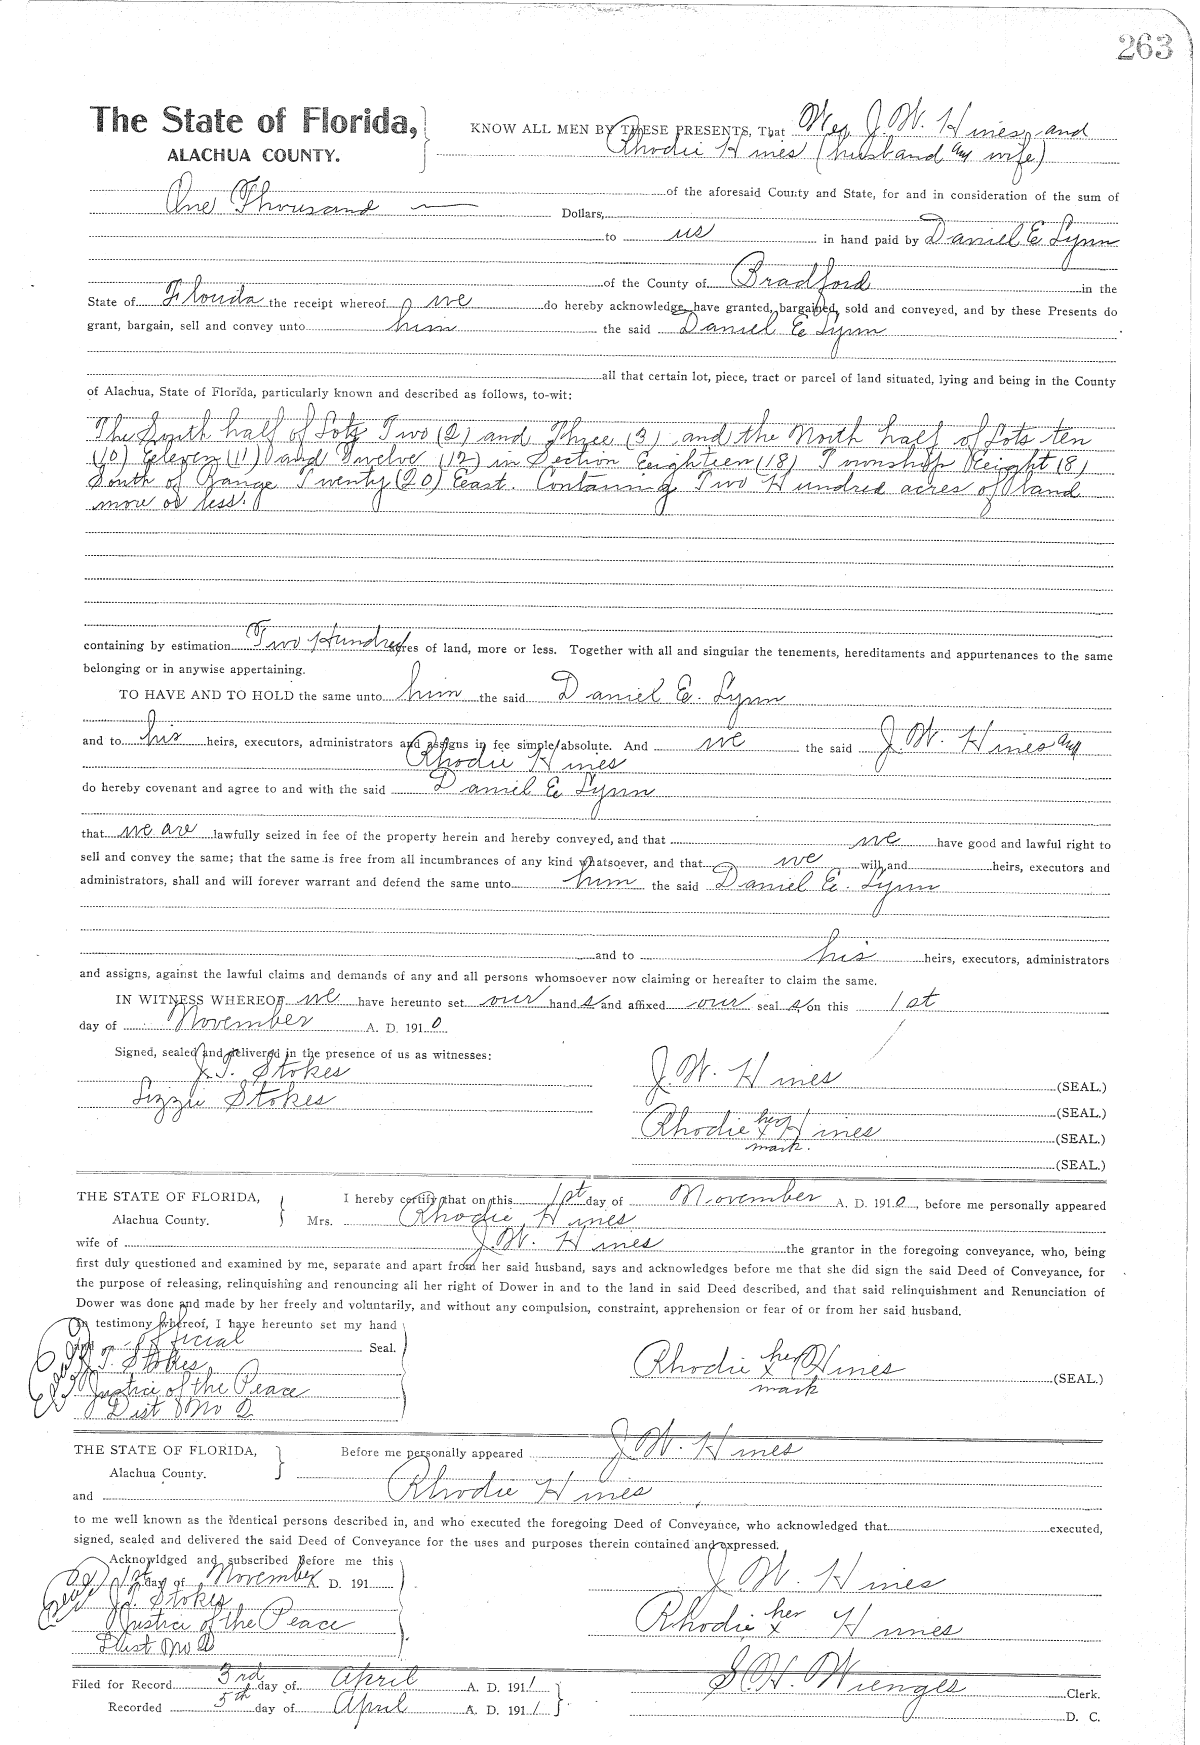 263
The State of Florida,
ALACHUA COUNTY.
KNOW ALL MEN BY THESE PRESENTS, That We, J. W. Hines, and
Rhodie Hines (husband and wife)
of the aforesaid County and State, for and in consideration of the sum of
One Thousand Dollars,
to us in hand paid by Daniel E Lynn
of the County of Bradford in the
State of Florida the receipt whereof we do hereby acknowledge, have granted, bargained, sold and conveyed, and by these Presents do
grant, bargain, sell and convey unto him the said Daniel E Lynn
all that certain lot, piece, tract or parcel of land situated, lying and being in the County
of Alachua, State of Florida, particularly known and described as follows, to-wit:
The South half of Lots Two (2) and Three (3) and the North half of Lots ten
(10) Eleven (11) and Twelve (12) in Section Eeighteen (18) Township Eeight (8)
South of Range Twenty (20) East. Containing Two Hundred acres of land
more or less.
containing by estimation Two Hundred acres of land, more or less. Together with all and singular the tenements, hereditaments and appurtenances to the same
belonging or in anywise appertaining.
TO HAVE AND TO HOLD the same unto him the said Daniel E. Lynn
and to his heirs, executors, administrators and assigns in fee simple absolute. And we the said J. W. Hines and
Rhodie Hines
do hereby covenant and agree to and with the said Daniel E Lynn
that we are lawfully seized in fee of the property herein and hereby conveyed, and that we have good and lawful right to
sell and convey the same; that the same is free from all incumbrances of any kind whatsoever, and that we will and heirs, executors and
administrators, shall and will forever warrant and defend the same unto him the said Daniel E. Lynn
and to his heirs, executors, administrators
and assigns, against the lawful claims and demands of any and all persons whomsoever now claiming or hereafter to claim the same.
IN WITNESS WHEREOF we have hereunto set our hand s and affixed our seal s on this 1st
day of November A. D. 1910
Signed, sealed and delivered in the presence of us as witnesses:
J. T. Stokes
Lizzie Stokes
J. W. Hines (SEAL.)
(SEAL.)
Rhodie her x mark. Hines (SEAL.)
(SEAL.)
THE STATE OF FLORIDA,
Alachua County.
I hereby certify that on this 1st day of November A. D. 1910, before me personally appeared
Mrs. Rhodie Hines
wife of J. W. Hines the grantor in the foregoing conveyance, who, being
first duly questioned and examined by me, separate and apart from her said husband, says and acknowledges before me that she did sign the said Deed of Conveyance, for
the purpose of releasing, relinquishing and renouncing all her right of Dower in and to the land in said Deed described, and that said relinquishment and Renunciation of
Dower was done and made by her freely and voluntarily, and without any compulsion, constraint, apprehension or fear of or from her said husband.
In testimony whereof, I have hereunto set my hand
and official Seal.
J. T. Stokes
Justice of the Peace
Dist No 2
Rhodie her x mark Hines (SEAL.)
THE STATE OF FLORIDA,
Alachua County.
Before me personally appeared J. W. Hines
and Rhodie Hines
to me well known as the identical persons described in, and who executed the foregoing Deed of Conveyance, who acknowledged that executed,
signed, sealed and delivered the said Deed of Conveyance for the uses and purposes therein contained and expressed.
Acknowldged and subscribed before me this
1st day of November A. D. 191
J. T. Stokes
Justice of the Peace
Dist No 2
J. W. Hines
Rhodie her x Hines
Filed for Record 3rd day of April A. D. 1911
Recorded 5th day of April A. D. 1911
S. H. Wienges Clerk.
D. C.